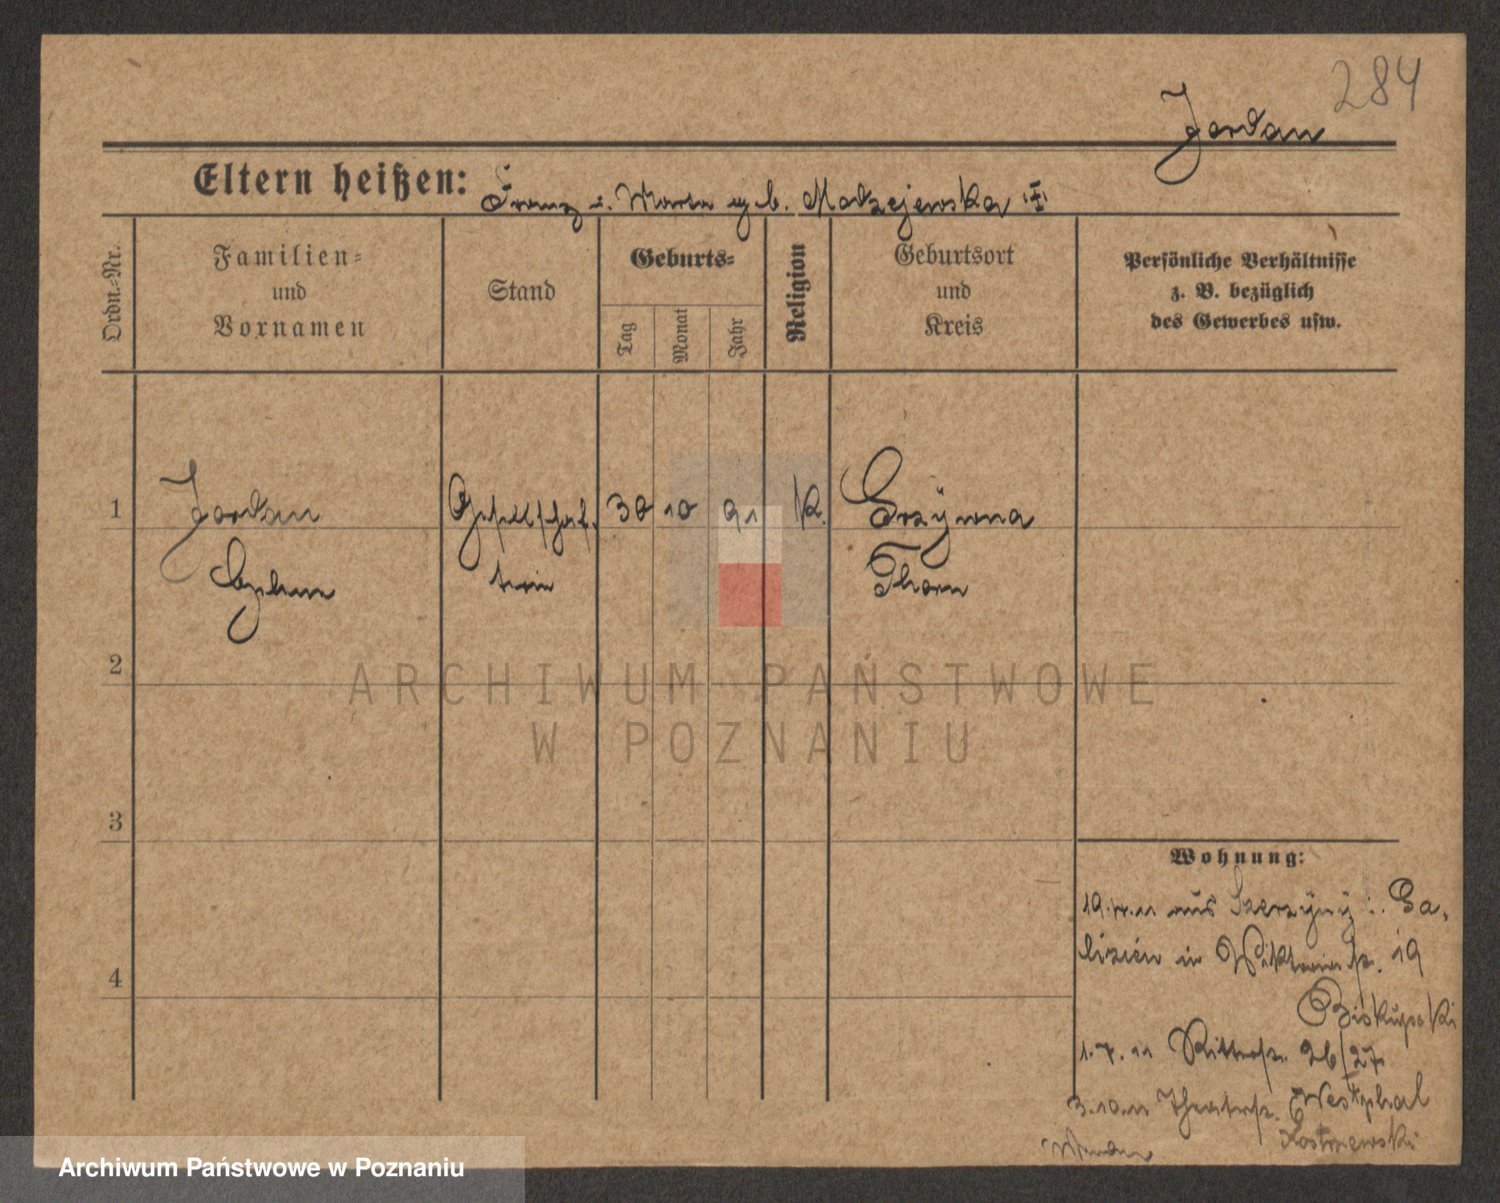 284
Jordan
Eltern heißen: Franz u. Marta geb. Madzejewska
Ordn.-Nr.
Familien-
und
Vornamen
Stand
Geburts-
Tag
Monat
Jahr
Religion
Geburtsort
und
Kreis
Persönliche Verhältnisse
z. B. bezüglich
des Gewerbes usw.
1
Jordan
Gesellschaf-
terin
30 10 91 K.
Grzywna
Thorn
2
3
4
Wohnung:
19.4.11 aus Szerzyny i. Ga-
lizien in Viktoriastr. 19
Biskupski
1.7.11 Ritterstr. 26/27
Westphal
3.10.11 Theaterstr.
Kostrzewski
ARCHIWUM PAŃSTWOWE
W POZNANIU
Archiwum Państwowe w Poznaniu